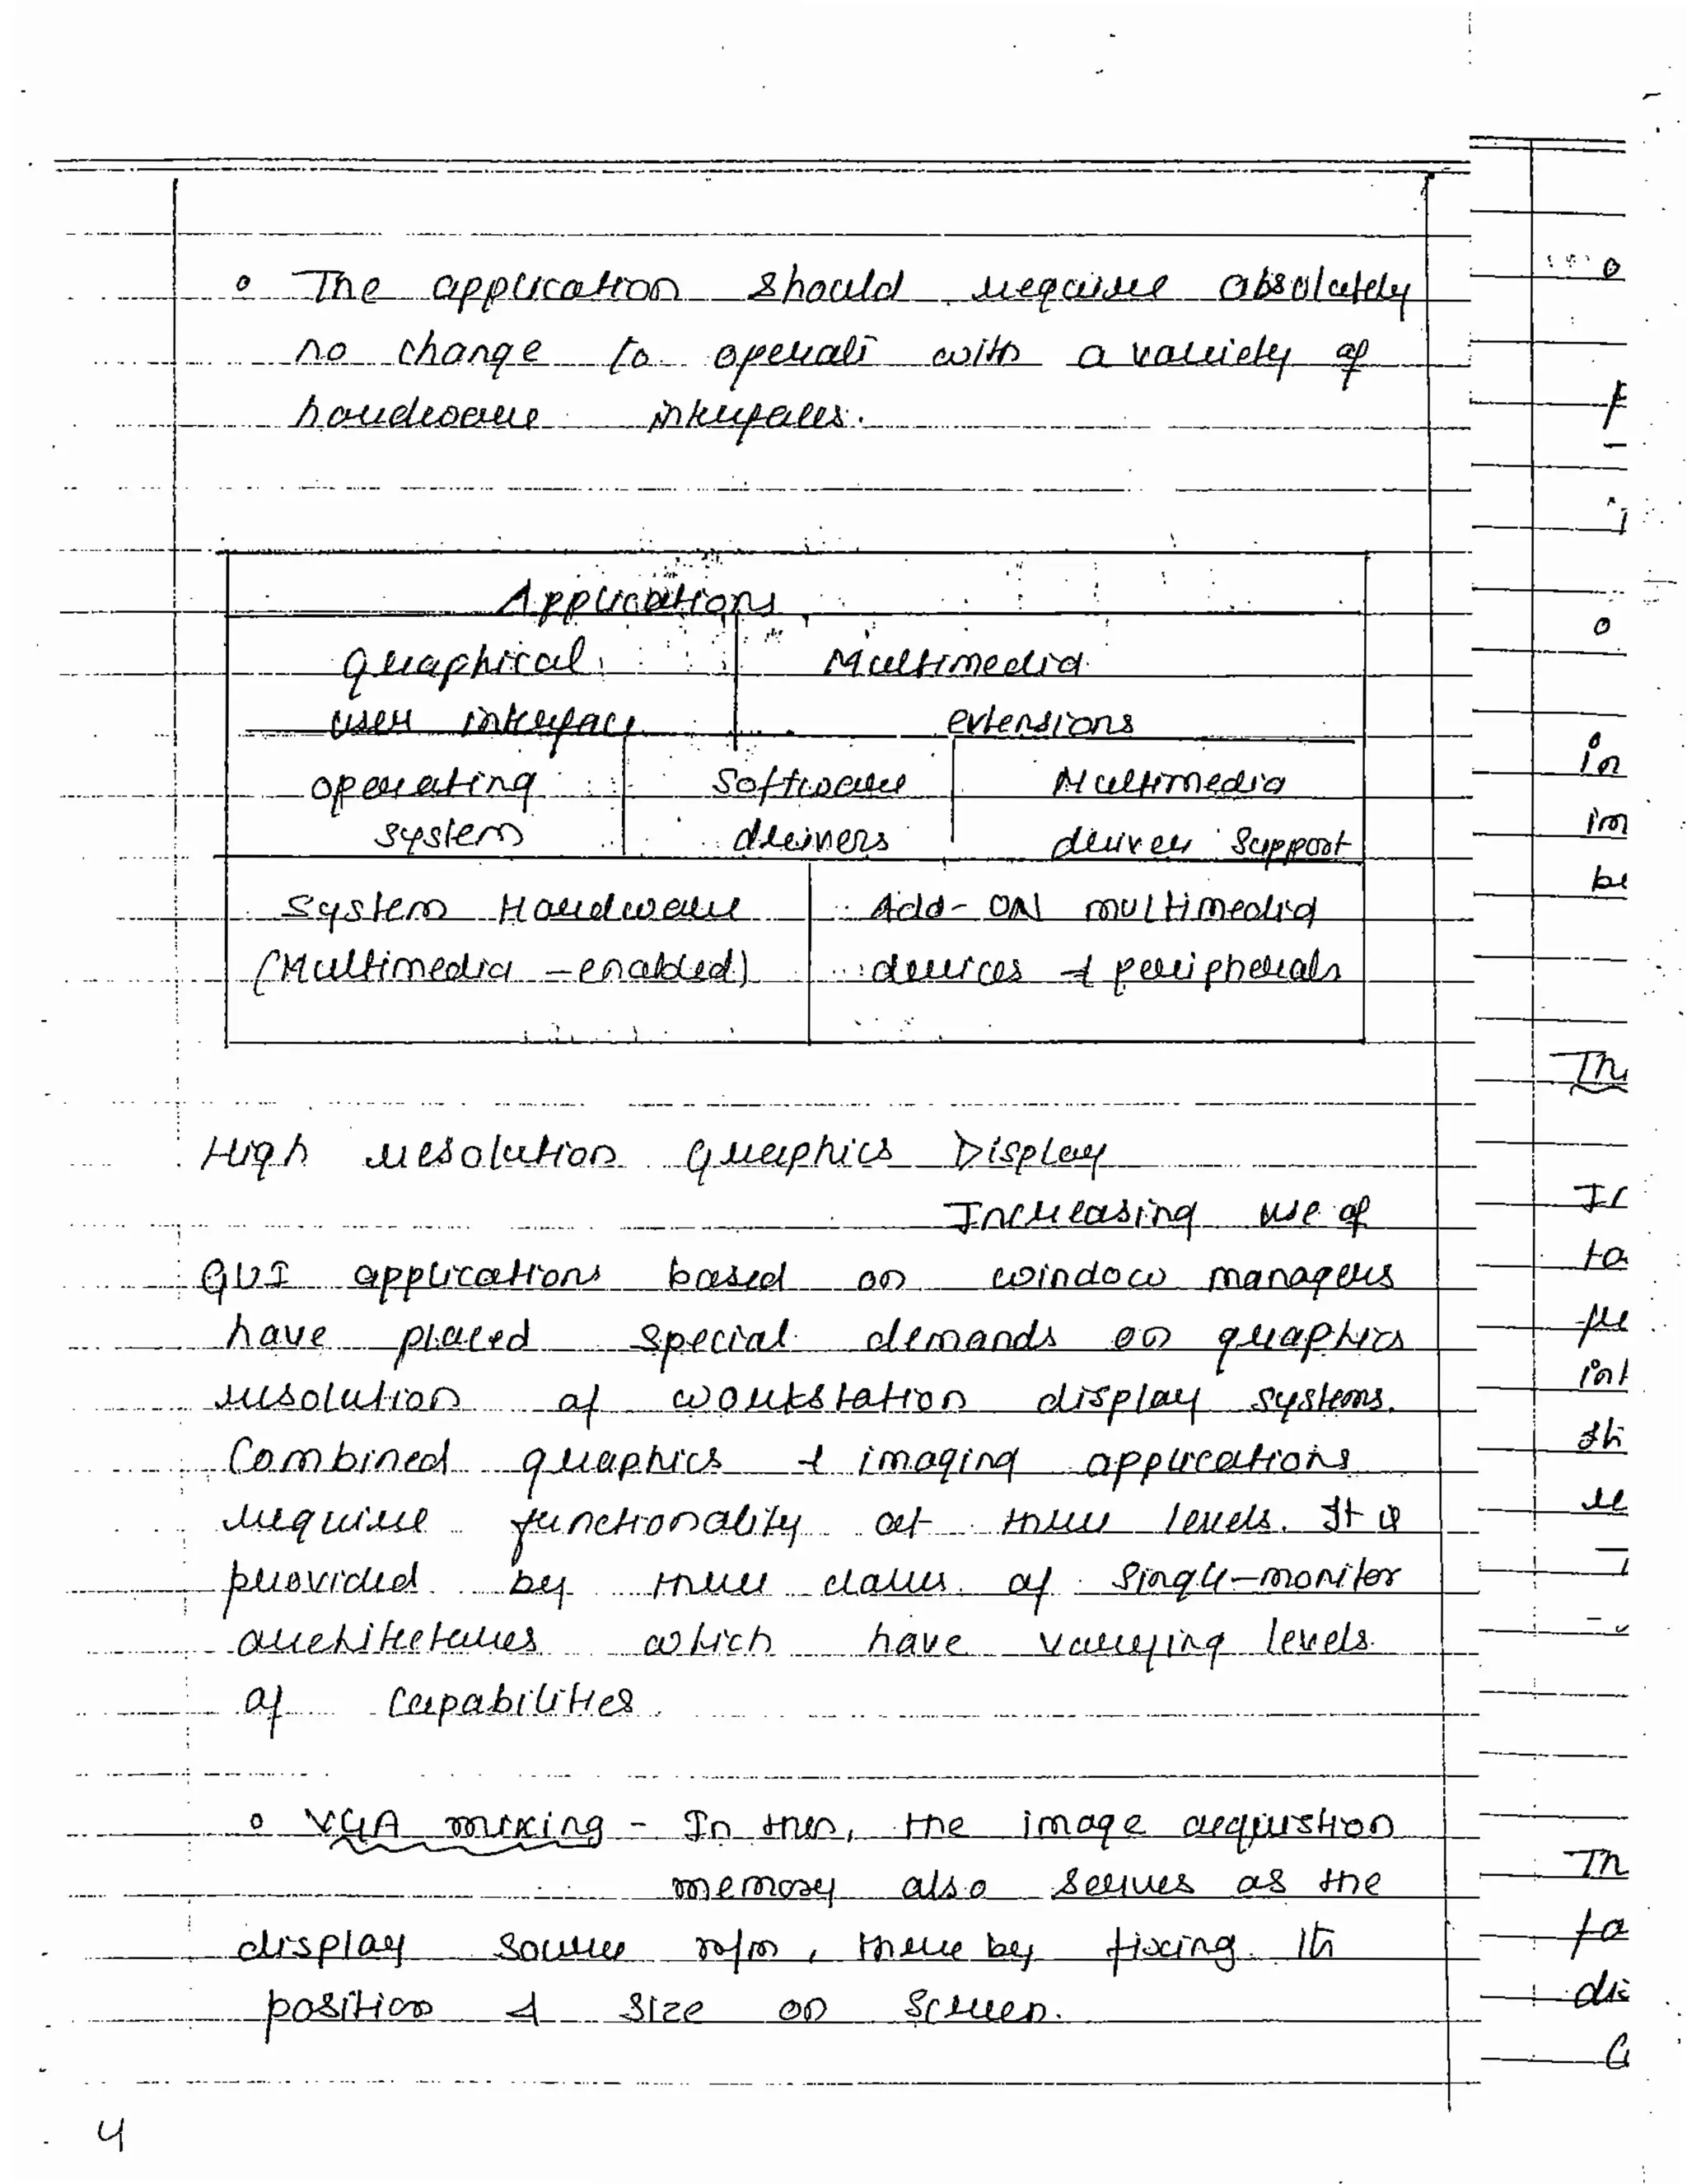 o The application should require absolutely
no change to operate with a variety of
hardware interfaces.
Applications
Graphical Multimedia
user interface extensions
operating Software Multimedia
system drivers driver Support
System Hardware Add-ON multimedia
(Multimedia - enabled) devices & peripherals
High resolution Graphics Display
Increasing use of
GUI applications based on window managers
have placed special demands on graphics
resolution of workstation display systems.
Combined graphics & imaging applications
require functionality at three levels. It is
provided by three classes of Single-monitor
architectures which have varying levels
of capabilities.
o VGA mixing - In this, the image acqiustion
memory also serves as the
display source m/m, thereby fixing its
position & size on screen.
4
o
o
in
im
be
Th
ta
int
Th